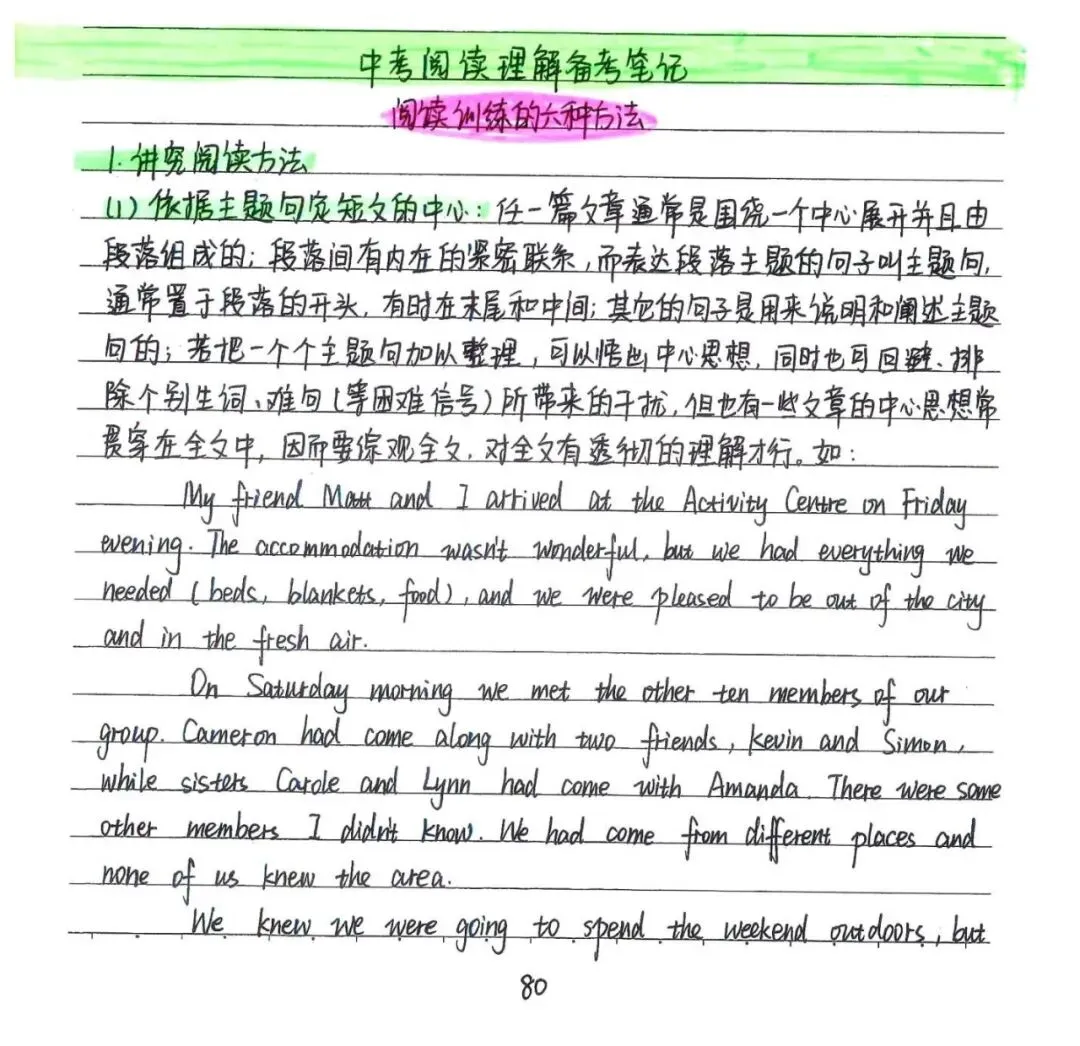 中考阅读理解备考笔记
阅读训练的六种方法
1. 讲究阅读方法
(1) 依据主题句定短文的中心: 任一篇文章通常是围绕一个中心展开并且由
段落组成的; 段落间有内在的紧密联系, 而表达段落主题的句子叫主题句,
通常置于段落的开头, 有时在末尾和中间; 其它的句子是用来说明和阐述主题
句的; 若把一个个主题句加以整理, 可以悟出中心思想, 同时也可回避、排
除个别生词、难句(等困难信号)所带来的干扰, 但也有一些文章的中心思想常
贯穿在全文中, 因而要综观全文, 对全文有透彻的理解才行。如:
My friend Matt and I arrived at the Activity Centre on Friday
evening. The accommodation wasn't wonderful, but we had everything we
needed (beds, blankets, food), and we were pleased to be out of the city
and in the fresh air.
On Saturday morning we met the other ten members of our
group. Cameron had come along with two friends, Kevin and Simon,
while sisters Carole and Lynn had come with Amanda. There were some
other members I didn't know. We had come from different places and
none of us knew the area.
We knew we were going to spend the weekend outdoors, but
80